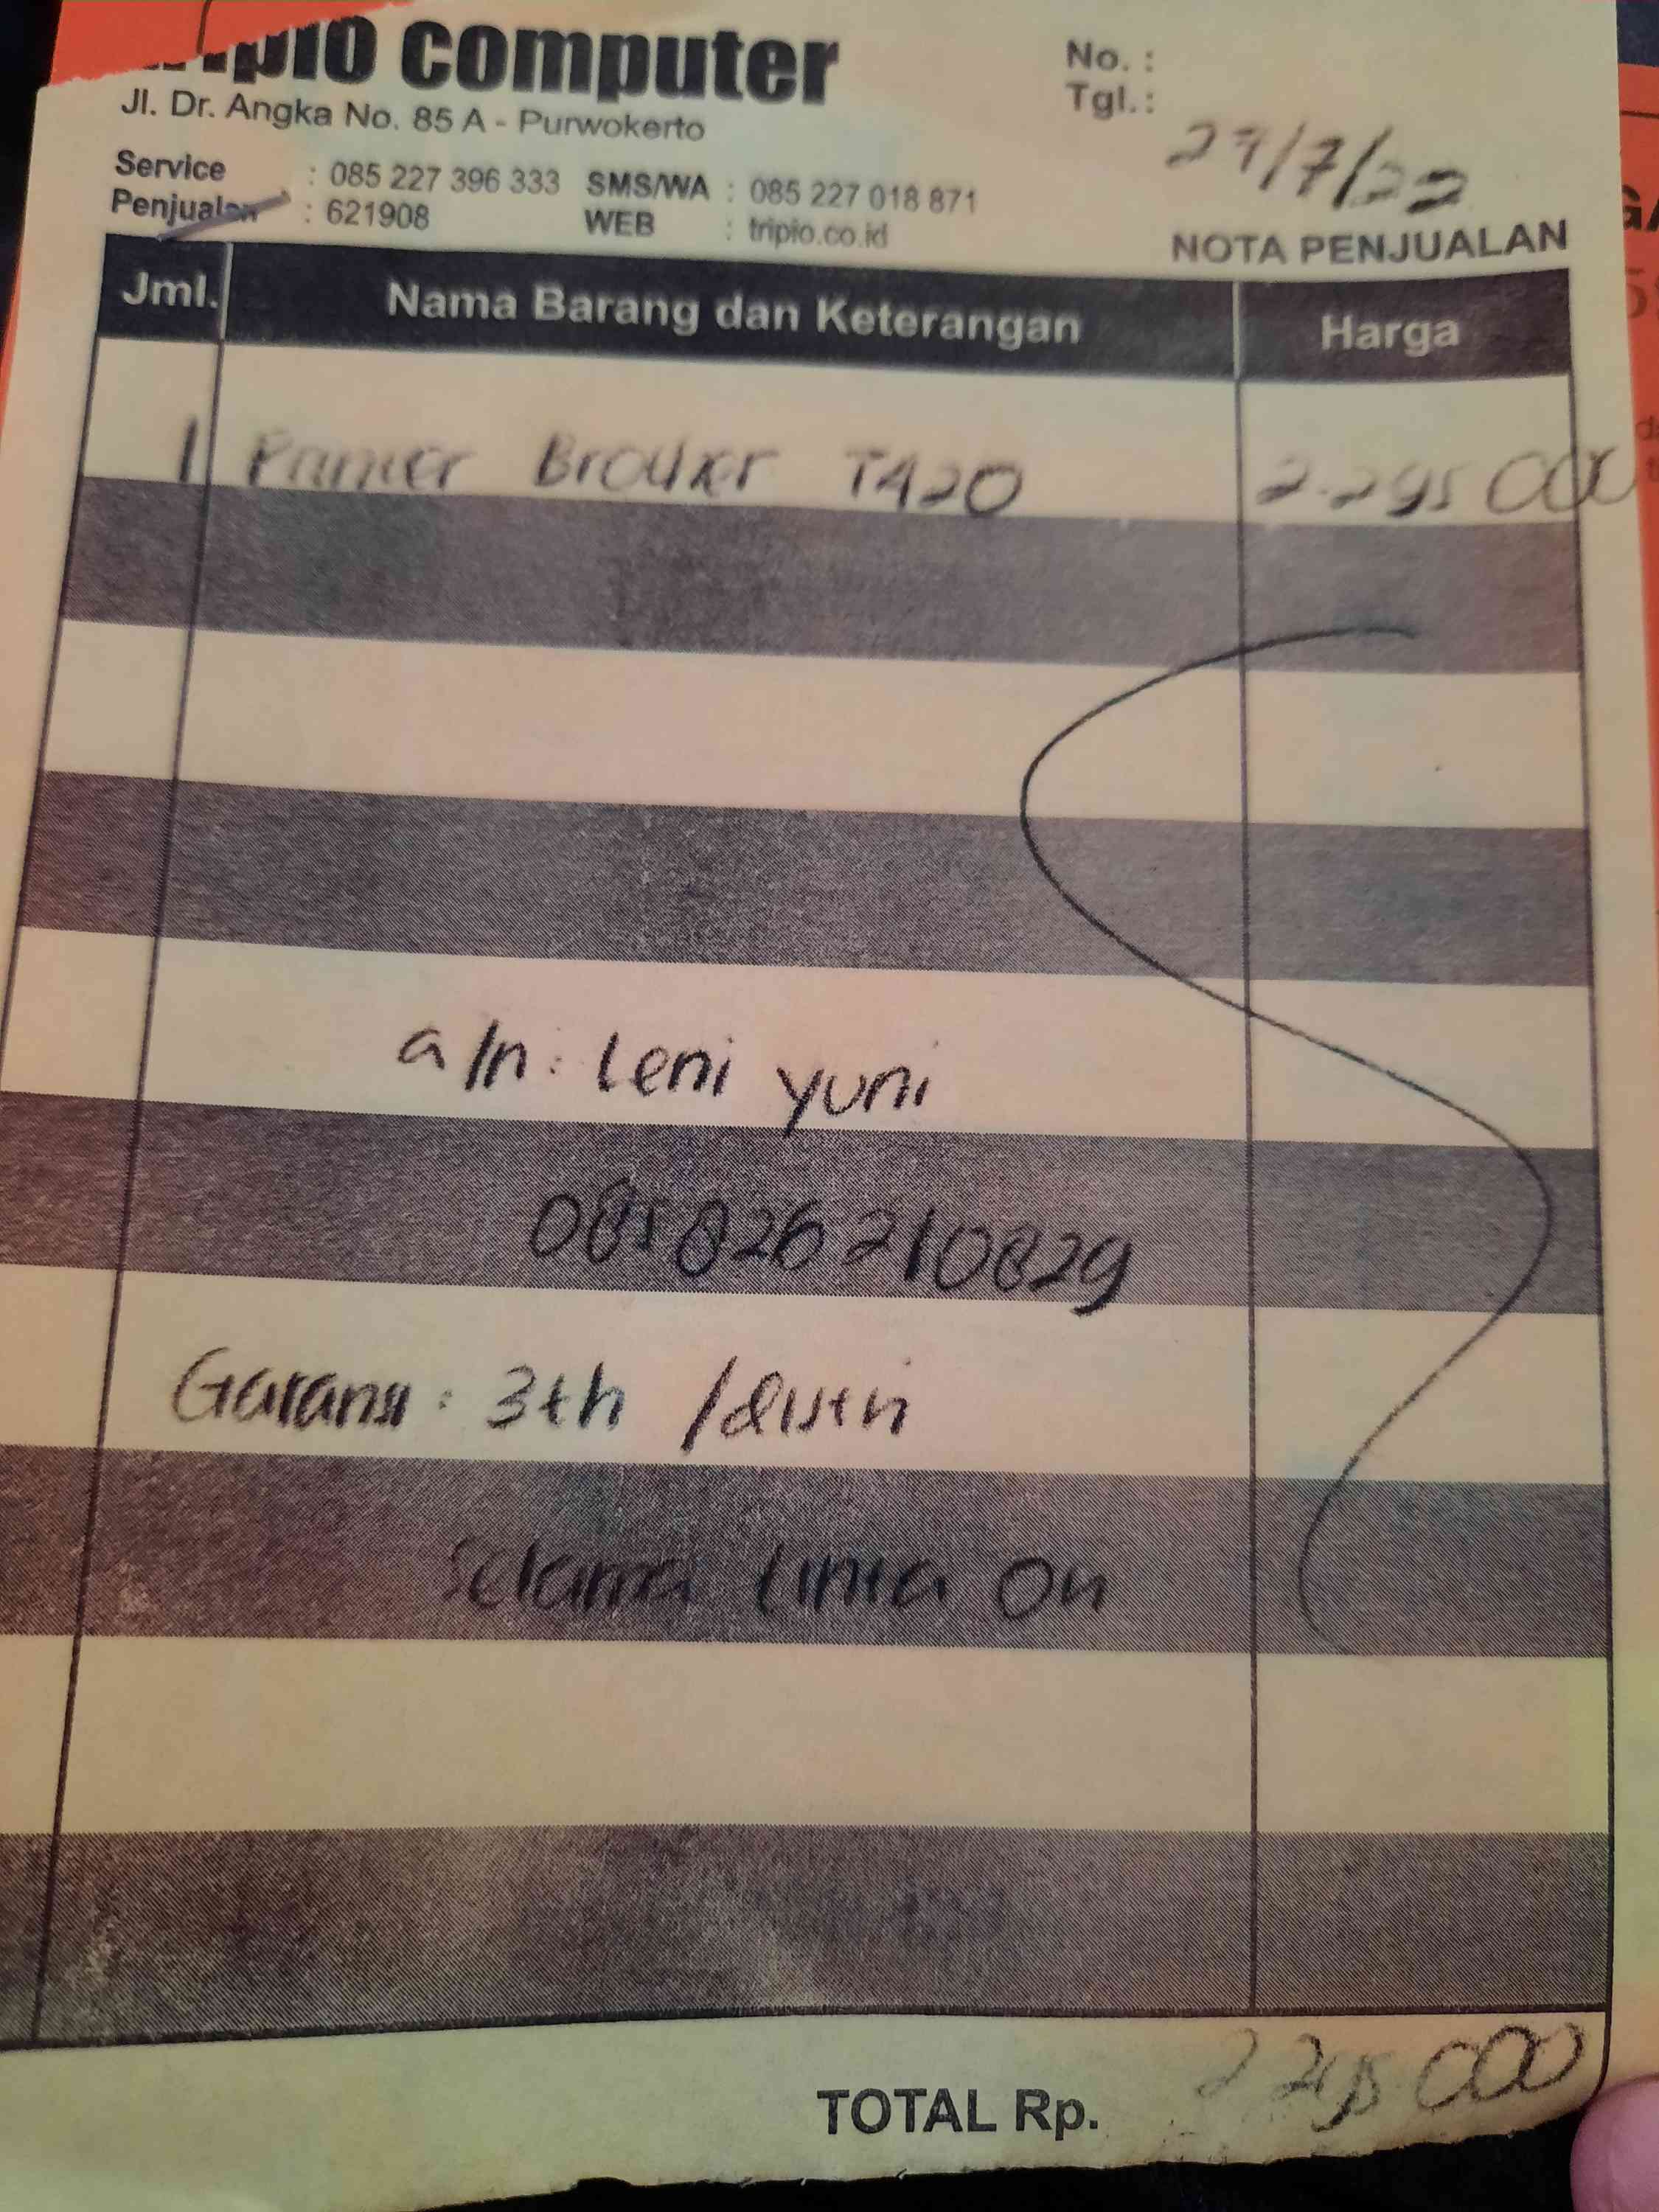 tripio computer
Jl. Dr. Angka No. 85 A - Purwokerto
No. :
Tgl. :
29/7/22
Service : 085 227 396 333 SMS/WA : 085 227 018 871
Penjualan : 621908 WEB : tripio.co.id
NOTA PENJUALAN
Jml. Nama Barang dan Keterangan Harga
1 Printer Brother T420 2.295 000
a/n : Leni yuni
085826210829
Garansi : 3th /distri
Selama tinta Ori
TOTAL Rp. 2 295 000